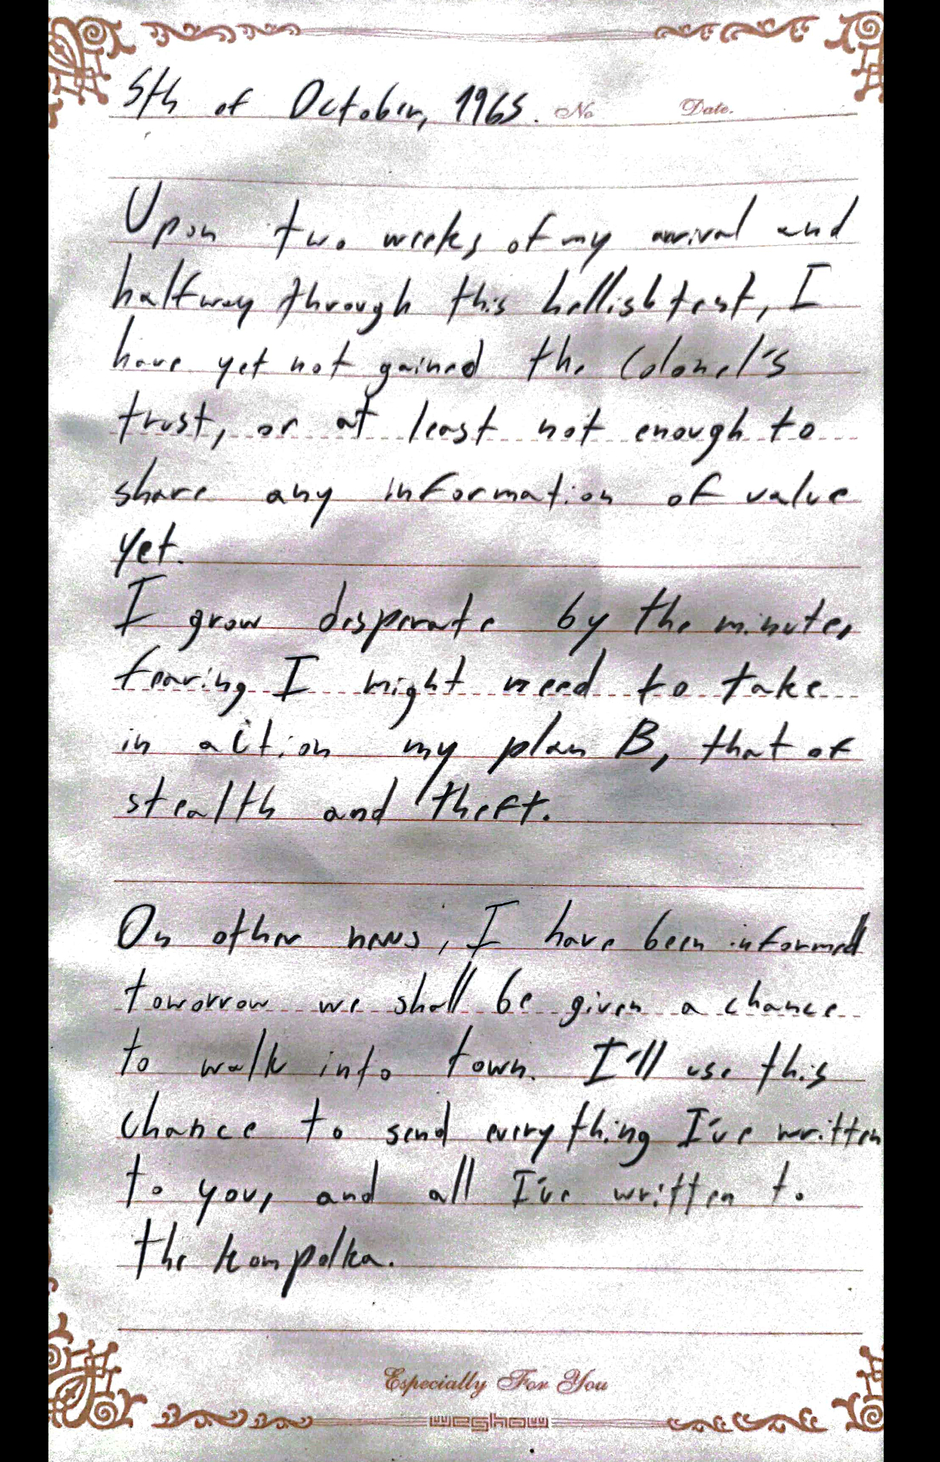 5th of October, 1965. No Date.
Upon two weeks of my arrival and
halfway through this hellish test, I
have yet not gained the Colonel's
trust, or at least not enough to
share any information of value
yet.
I grow desperate by the minute,
fearing I might need to take
in action my plan B, that of
stealth and theft.
On other news, I have been informed
tomorrow we shall be given a chance
to walk into town. I'll use this
chance to send everything I've written
to you, and all I've written to
the kompolka.
Especially For You
weghow